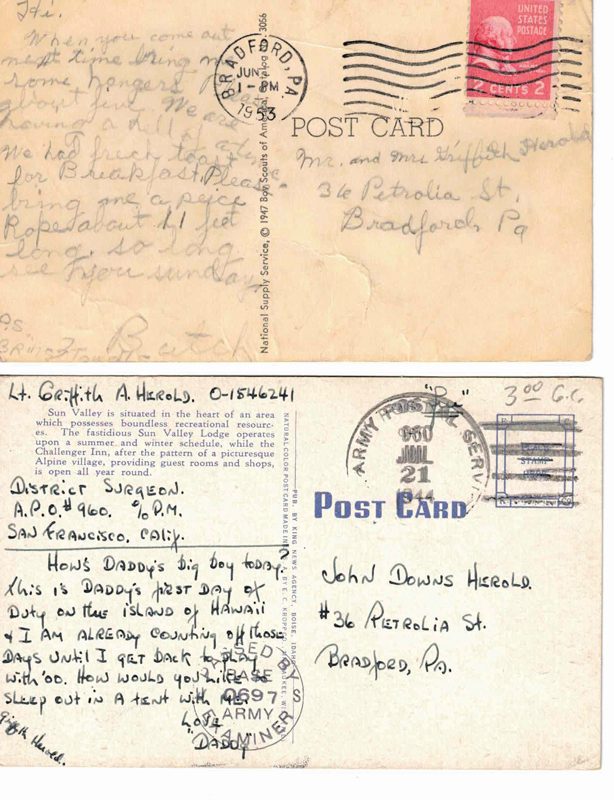 Hi.
When you come out
next time bring me
some hangers
about five. We are
having a hell of
a time
We had french toast
for Breakfast. Please
bring me a peice
Rope about 11 feet
long. so long
see you sunday
PS
Butch
National Supply Service, © 1947 Boy Scouts of America Catalog 3056
BRADFORD, PA.
JUN
1-PM
1953
UNITED
STATES
POSTAGE
2 CENTS 2
POST CARD
Mr. and Mrs Griffith Herold
36 Petrolia St,
Bradford, Pa
Lt. Griffith A. Herold. O-1546241
Sun Valley is situated in the heart of an area
which possesses boundless recreational resourc-
es. The fastidious Sun Valley Lodge operates
upon a summer and winter schedule, while the
Challenger Inn, after the pattern of a picturesque
Alpine village, providing guest rooms and shops,
is open all year round.
District Surgeon.
A.P.O. #960. c/o P.M.
San Francisco. Calif.
How's Daddy's big boy today?
This is Daddy's first day of
duty on the island of Hawaii
& I am already counting off those
days until I get back to play
with 'oo. How would you like to
sleep out in a tent with me.
Love
"Daddy"
Griffith Herold.
PASSED BY
BASE
0697
ARMY
EXAMINER
NATURAL COLOR POST CARD MADE IN U.S.A. BY E. C. KROPP CO., MILWAUKEE, WIS.
PUB. BY KING NEWS AGENCY, BOISE, IDAHO
3.00 G.C.
ARMY POSTAL SERVICE
960
JUL
21
1944
PLACE
STAMP
HERE
POST CARD
John Downs Herold.
#36 Petrolia St.
Bradford, Pa.